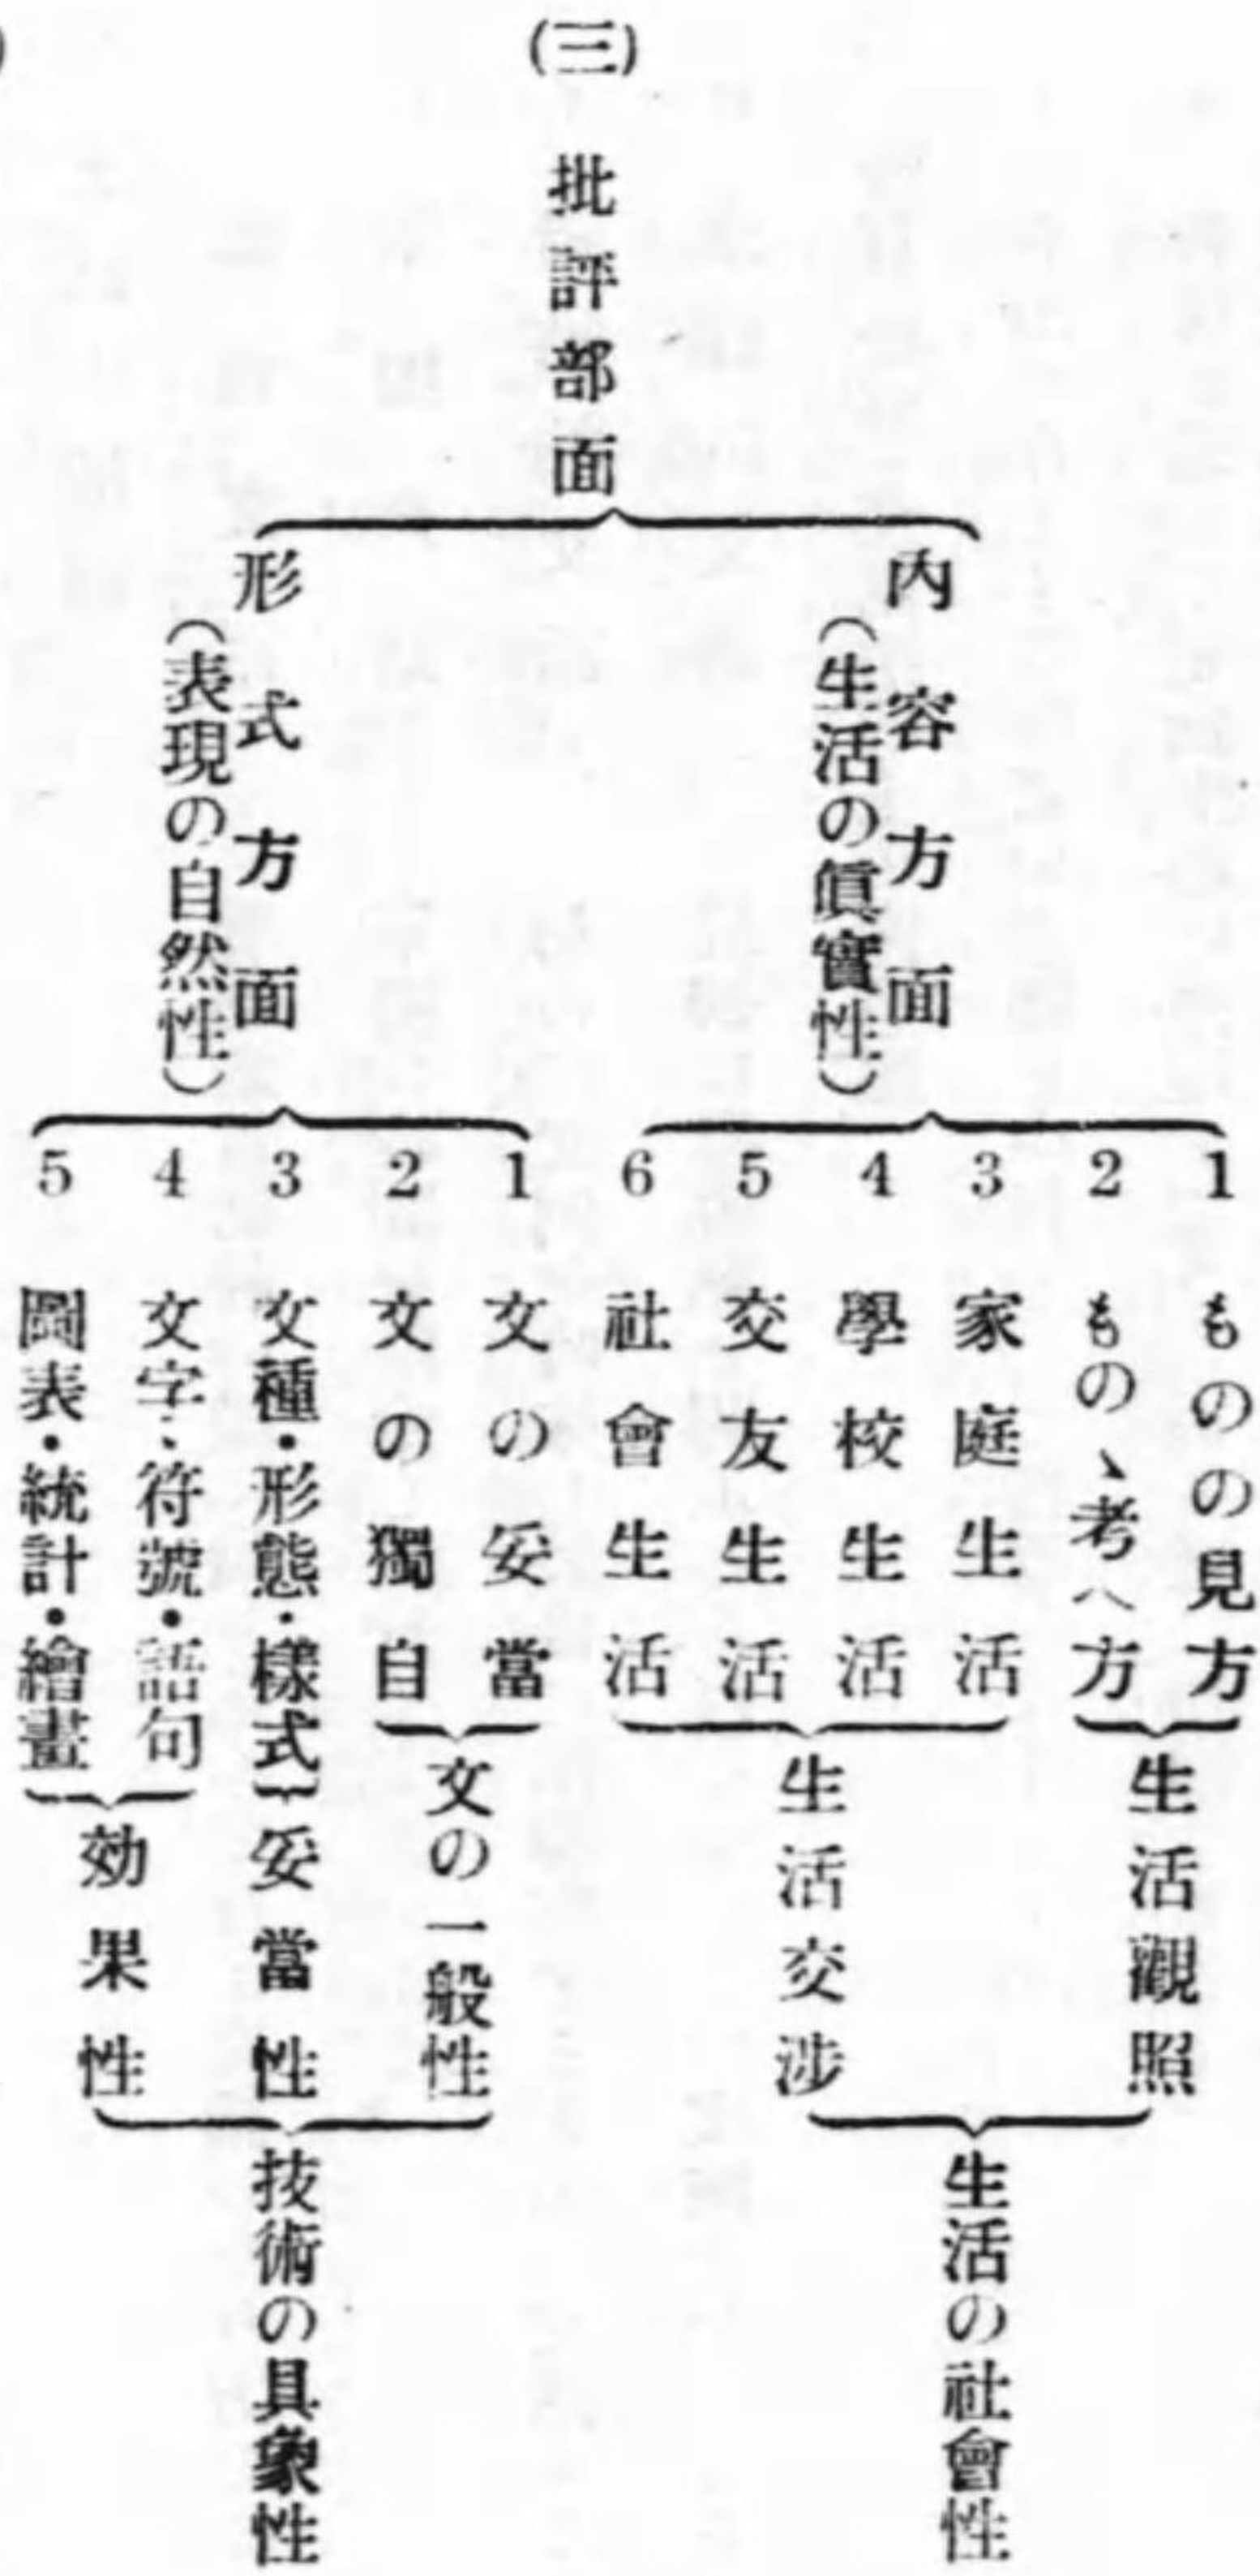 (三)
批評部面
內容方面
(生活の眞實性)
1 ものの見方
2 ものゝ考へ方
生活觀照
3 家庭生活
4 學校生活
5 交友生活
6 社會生活
生活交涉
生活の社會性
形式方面
(表現の自然性)
1 文の妥當
2 文の獨自
文の一般性
3 文種・形態・樣式
妥當性
4 文字、符號・語句
5 圖表・統計・繪畫
効果性
技術の具象性